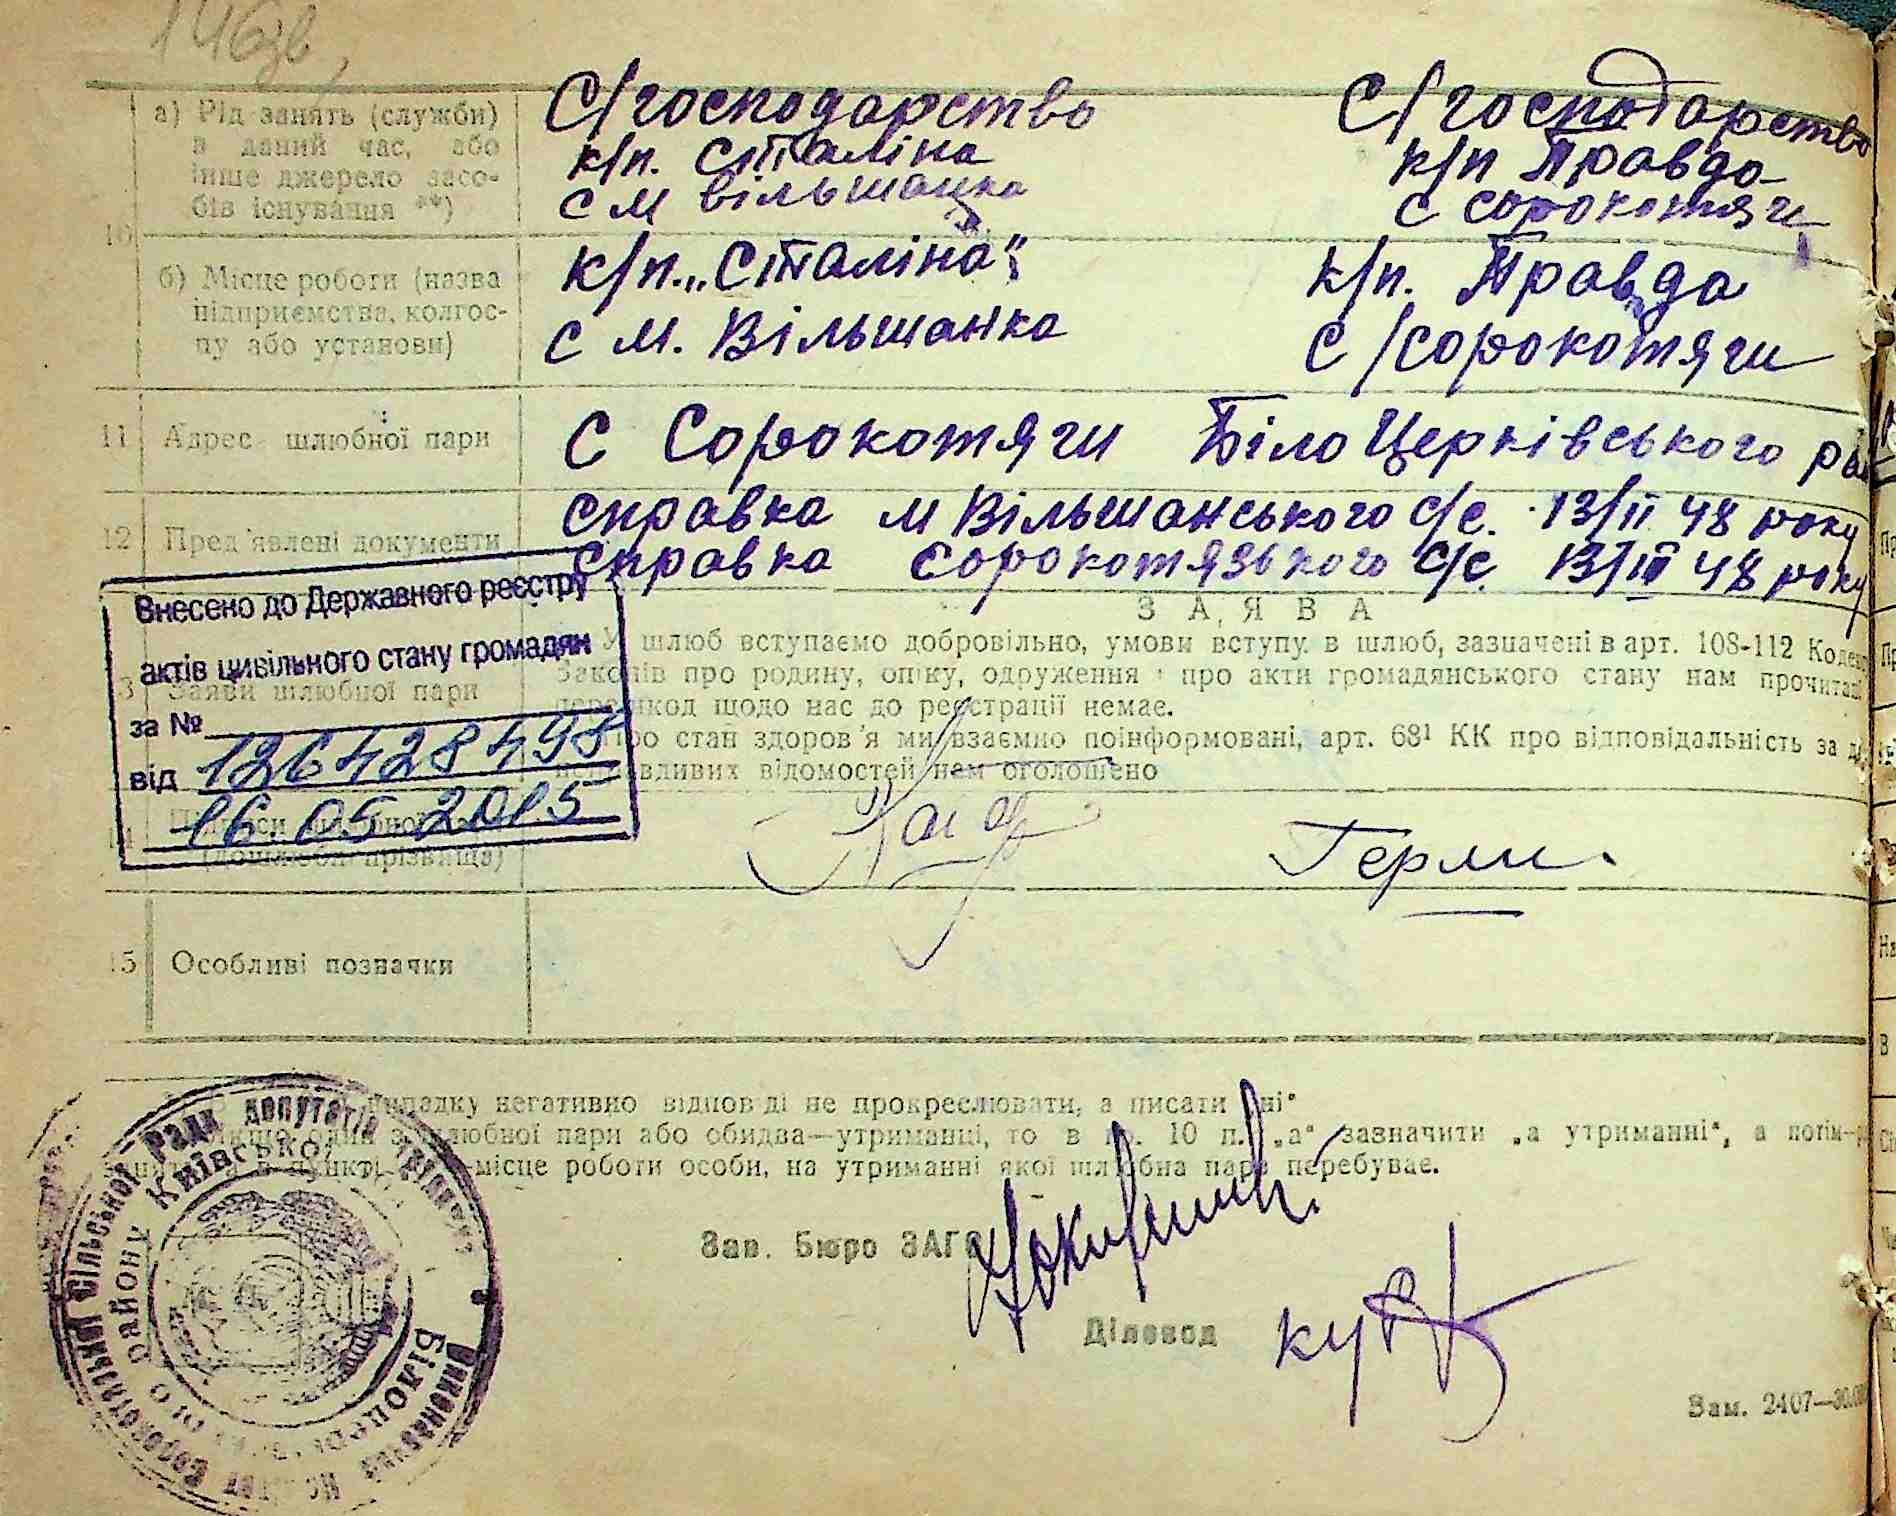 146зв,
а) Рід занять (служби) в даний час, або інше джерело засо-бів існування **)
С/господарство С/господарство
к/п. Сталіна к/п Правда
с м вільшанка с сорокотяги
10
б) Місце роботи (назва підприємства, колгос-пу або установи)
к/п. „Сталіна" к/п. Правда
с м. Вільшанка с/сорокотяги
11 Адрес шлюбної пари
с Сорокотяги БілоЦерківського ра
12 Пред'явлені документи
справка м Вільшанського с/с. 13/II 48 року
справка сорокотязького с/с 13/III 48 року
ЗАЯВА
У шлюб вступаємо добровільно, умови вступу в шлюб, зазначені в арт. 108-112 Кодек
Законів про родину, опіку, одруження і про акти громадянського стану нам прочитані
перешкод щодо нас до реєстрації немає.
Про стан здоров'я ми взаємно поінформовані, арт. 68¹ КК про відповідальність за
неправдивих відомостей нам оголошено
3 Заяви шлюбної пари
Внесено до Державного реєстру
актів цивільного стану громадян
за № 126428498
від 16.05.2015
14 Підписи шлюбної
(дошлюбні прізвища)
Герми.
15 Особливі позначки
випадку негативно відповіді не прокреслювати, а писати „ні"
Якщо один з шлюбної пари або обидва—утриманці, то в гр. 10 п. „а" зазначити „а утриманні", а потім
пункті місце роботи особи, на утриманні якої шлюбна пара перебуває.
Зав. Бюро ЗАГС
Діловод
Зам. 2407—30.
Виконавчий Ради депутатів трудящих
Сорокотязької Сільської
Білоцерків району Київської